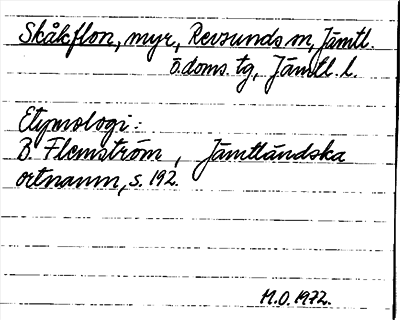 Skåkflon, myr, Revsunds sn, Jämtl.
ö. doms. tg, Jämtl. l.
Etymologi:
B. Flemström, Jämtländska
ortnamn, s. 192.
M.O. 1972.